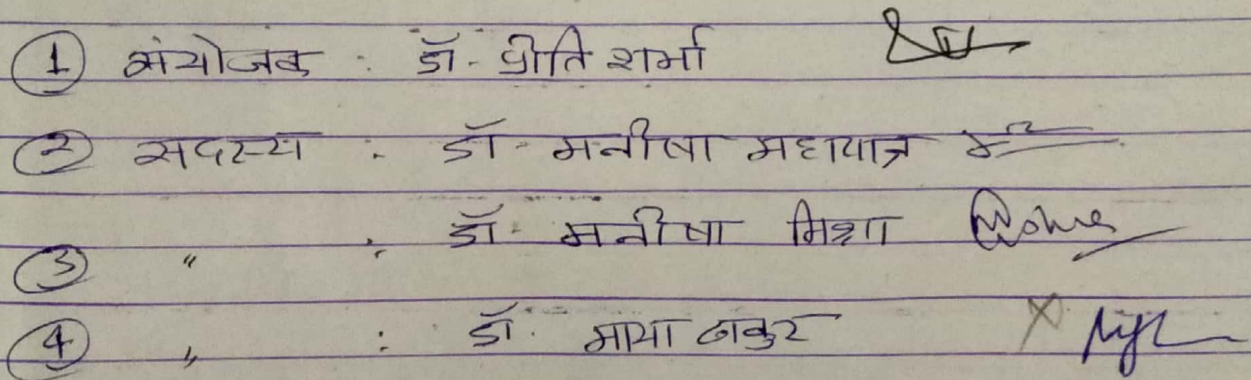 1 संयोजक : डॉ. प्रीति शर्मा
2 सदस्य : डॉ. मनीषा महापात्र
3 " : डॉ. मनीषा मिश्रा
4 " : डॉ. माया ठाकुर X